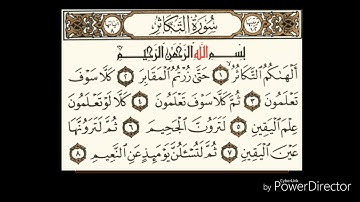 سُورَةُ التَّكَاثُرِ
بِسْمِ اللَّهِ الرَّحْمَٰنِ الرَّحِيمِ
أَلْهَىٰكُمُ التَّكَاثُرُ ۝١ حَتَّىٰ زُرْتُمُ الْمَقَابِرَ ۝٢ كَلَّا سَوْفَ
تَعْلَمُونَ ۝٣ ثُمَّ كَلَّا سَوْفَ تَعْلَمُونَ ۝٤ كَلَّا لَوْ تَعْلَمُونَ
عِلْمَ الْيَقِينِ ۝٥ لَتَرَوُنَّ الْجَحِيمَ ۝٦ ثُمَّ لَتَرَوُنَّهَا
عَيْنَ الْيَقِينِ ۝٧ ثُمَّ لَتُسْأَلُنَّ يَوْمَئِذٍ عَنِ النَّعِيمِ ۝٨
CyberLink
by PowerDirector